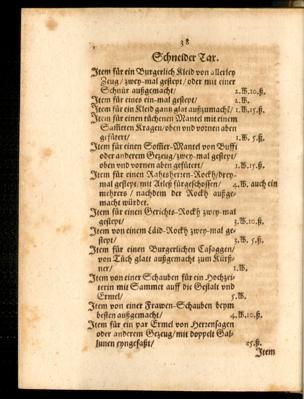 38
Schneider Tax.
Item für ein Burgerlich Kleid von allerley
Zeug/ zwey-mal gesteyt/ oder mit einer
Schnür außgemacht/ 2.℔.10.ß.
Item für eines ein-mal gesteyt/ 2.℔.
Item für ein Kleid gantz glat außzumachẽ/ 1.℔.15.ß.
Item für einen tüchenen Mantel mit einem
Kragen/ oben vnd vornen aber
gefütert/ 1.℔. 5.ß.
Item für einen Mantel von
oder anderem Gezeug/ zwey-mal gesteyt/
oben vnd vornen aben gefütert/ 1.℔.15.ß.
Item für einen Rahtsherren-Rock/ drey-
mal gesteyt/ mit Atleß fürgeschossen/ 4.℔. auch ein
mehrers / nachdem der Rock außge-
macht würdet.
Item für einen Gerichts-Rock zwey-mal
gesteyt/ 3.℔.10.ß.
Item von einem Läid-Rock zwey-mal ge-
steyt/ 3.℔. 5.ß.
Item für einen Burgerlichen Casaggen
von Tüch glatt außgemacht zum Kürß-
ner/ 1.℔.
Item von einer Schauben für ein Hochzei-
terin mit Sammet auff die Gestalt vnd
Ermel/ 5.℔.
Item von einer Frawen-Schauben beym
besten außgemacht/ 4.℔.10.ß.
Item für ein par Ermel von
oder anderem Gezeug/ mit doppelt Gal-
lunen eyngefaßt/ 15.ß.
Item